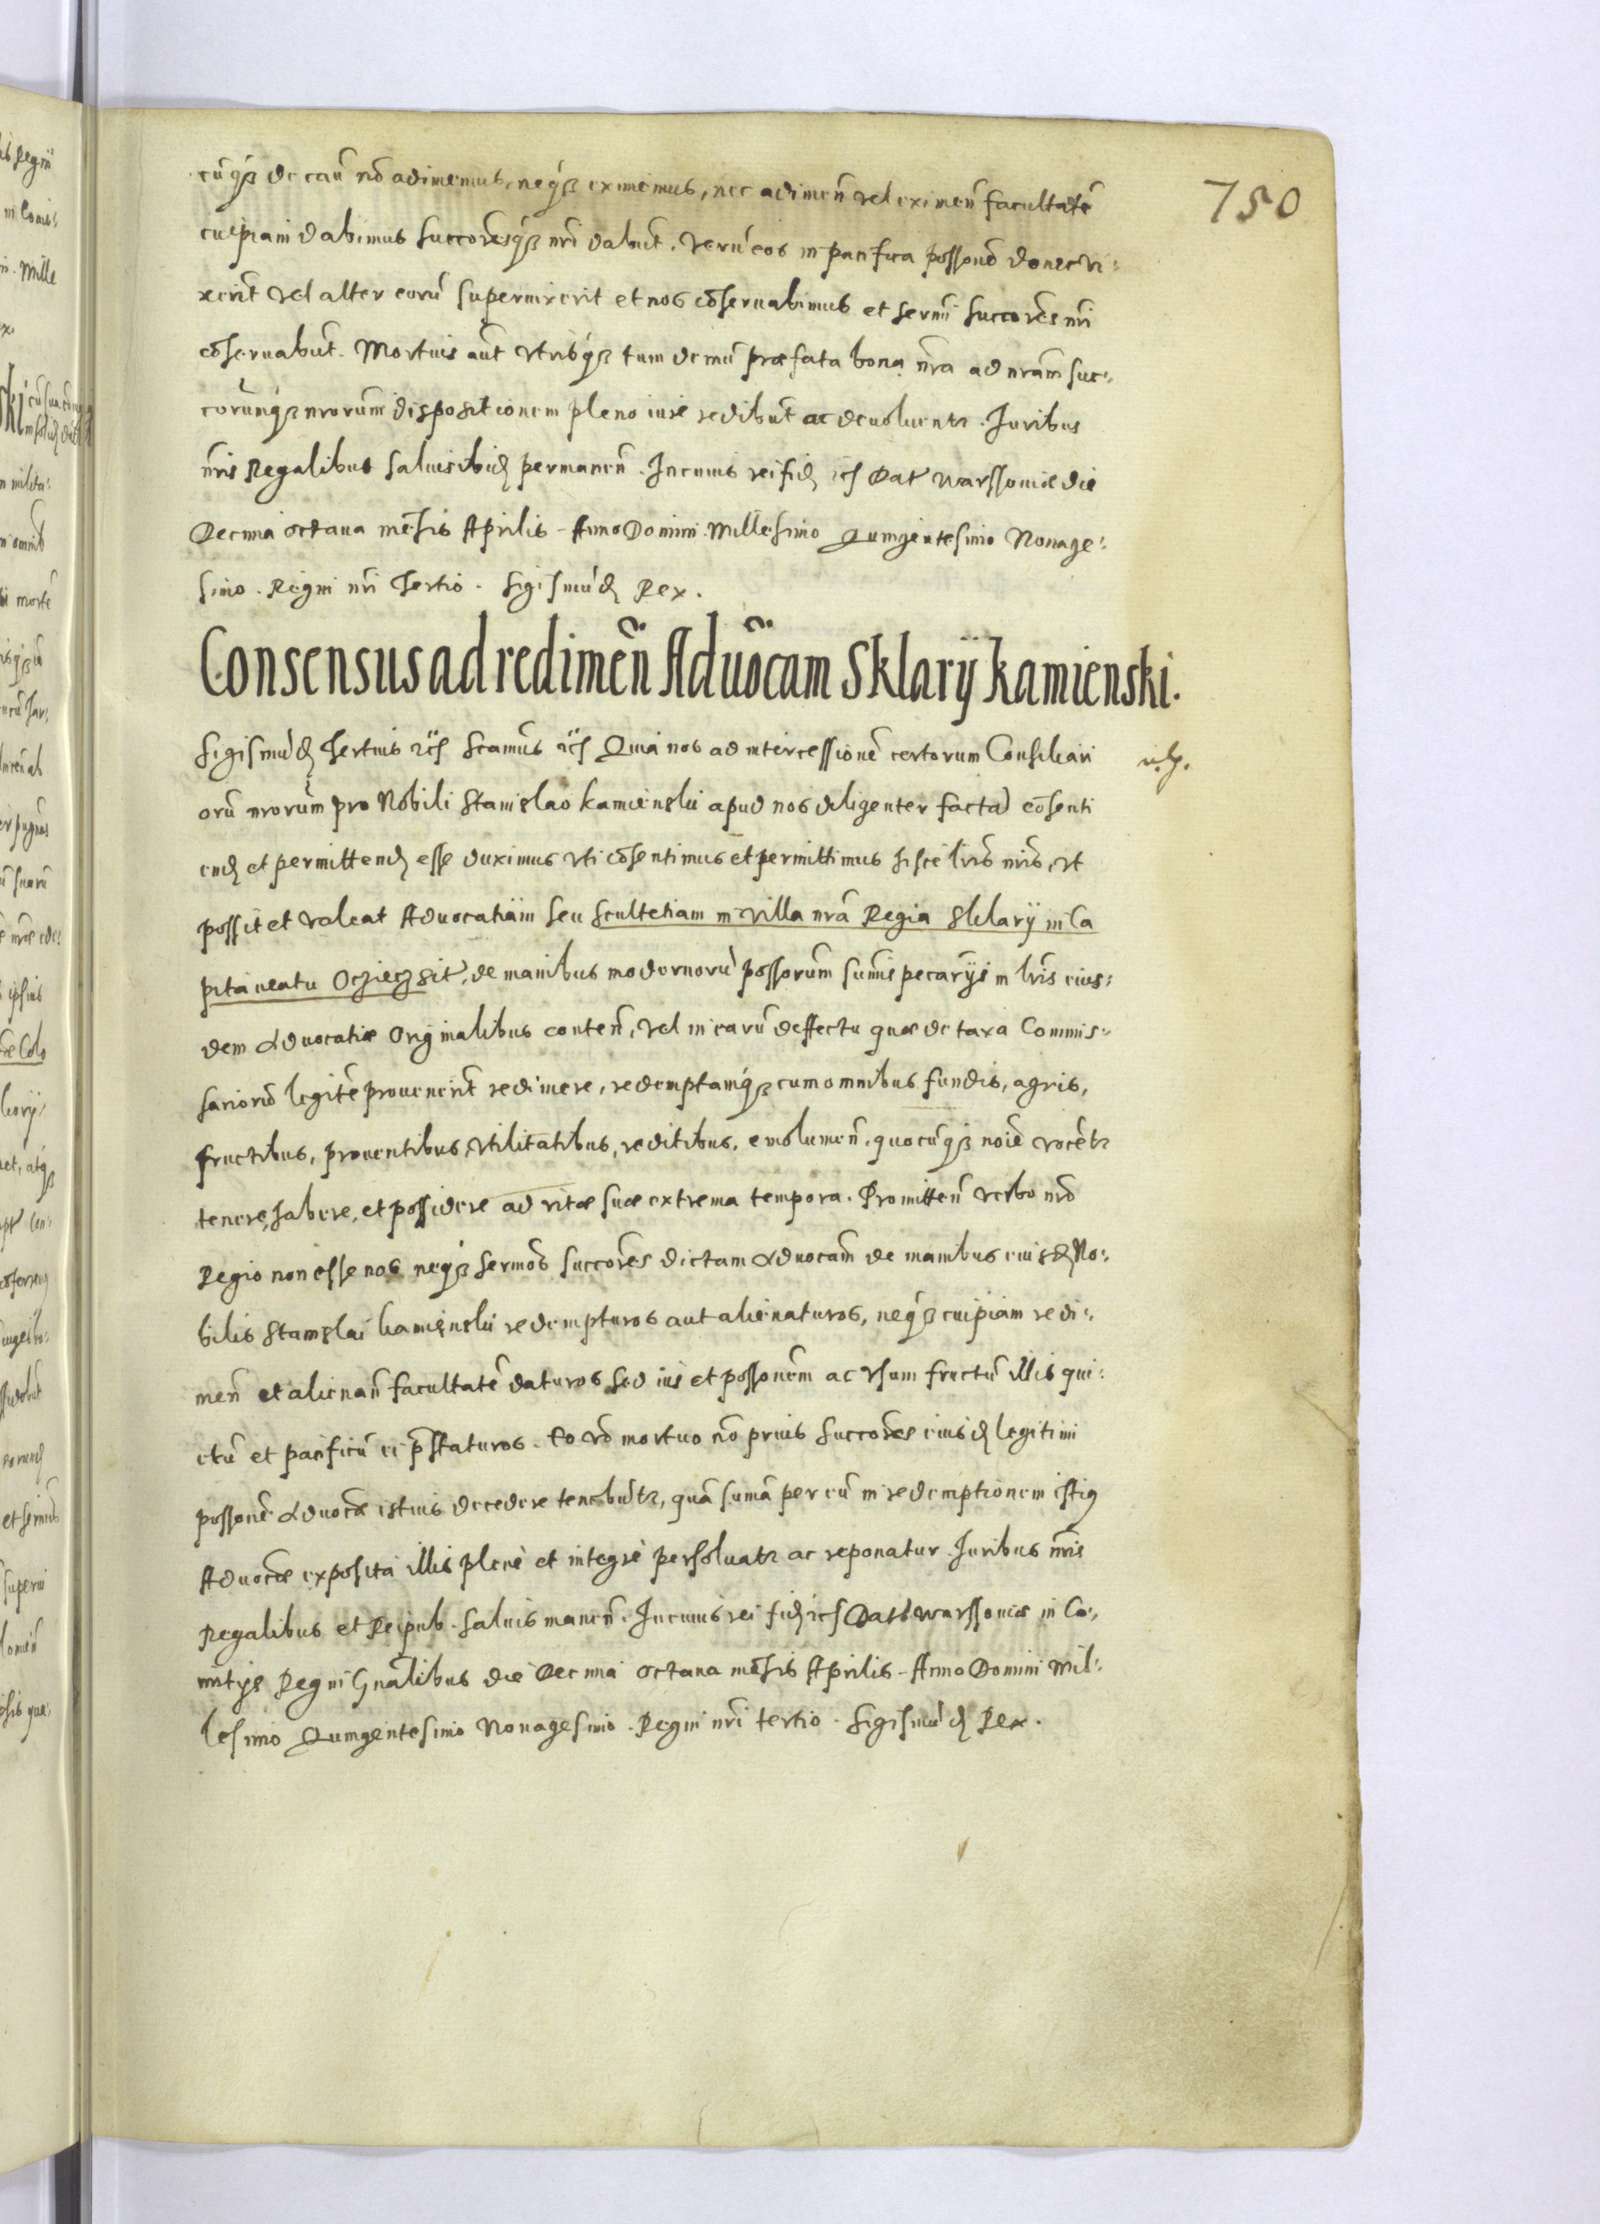 750
cūqȝ de caū nō adimemus, neqȝ eximemus, nec adimeñ vel eximeñ facultatē
cuipiam dabimus succoresqȝ nr̄i dabūt. Verū eos in pacifica possonē donec vi:
xerīt vel alter eorū supervixerit et nos cōservabimus et sermi succores nr̄i
cōservabūt. Mortuis aūt utribqȝ tum demū præfata bona nr̄a ad nr̄am suc:
corūmqȝ nr̄orum dispositionem pleno iure redibūt ac devoluentr. Juribus
nr̄is Regalibus salvis ibidē permaneñ. In cuius rei fidē etc Dat Warssoviæ die
Decima octava mēsis Aprilis. Anno Domini Millesimo Quingentesimo Nonage:
simo. Regni nr̄i Tertio. Sigismūdȝ Rex.
Consensus ad redimeñ Advocām Sklary Kamienski.
Sigismūdȝ Tertius etc Scamūs etc Quia nos ad intercessionē certorum Consiliari
orū nr̄orūm pro Nobili Stanislao Kamienski apud nos diligenter factā cōsenti
endū et permittendū esse duximus uti cōsentimus et permittimus hisce lris nr̄is, ut
possit et valeat Advocatiam seu Scultetiam in villa nr̄a Regia Sklary in Ca
pitaneatu Ojcow sit, de manibus modernorū possorum sumis pecaryis in lris eius:
dem Advocatiæ Originalibus conteñ, vel in earū deffectu quæ de taxa Commis:
sariorū legitē provenerīt redimere, redemptamqȝ cum omnibus fundis, agris,
fructibus, proventibus, utilitatibus, reditibus, emolumeñ, quocūqȝ noīe vocētr
tenere, habere, et possidere ad vitæ suæ extrema tempora. Promitteñ verbo nr̄o
Regio non esse nos neqȝ sermos succores dictam Advocām de manibus eiusdē No:
bilis Stanislai Kamienski redempturos aut alienaturos, neqȝ cuipiam redi:
meñ et alienañ facultatē daturos, sed ius et possonēm ac usum fructū illis qui:
etū et pacificū ei p̄staturos. Eo vō mortuo nō prius succores eiusdē legitimi
possonē Advocæ istius decedere tenebūtr, quā sumā per eū in redemptionem istiȝ
Advocæ exposita illis plene et integre persoluatr ac reponatur. Juribus nr̄is
Regalibus et Reipub. salvis maneñ. In cuius rei fidē etc Dat Warssoviæ in Co:
mitys Regni Gn̄alibus die Decima octava mēsis Aprilis. Anno Domini Mil:
lesimo Quingentesimo Nonagesimo. Regni nr̄i tertio. Sigismūdȝ Rex.